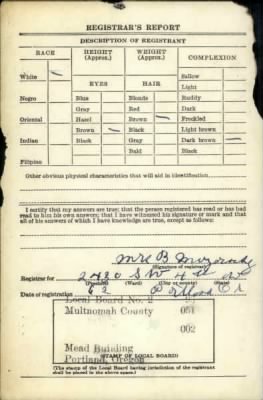 REGISTRAR'S REPORT
DESCRIPTION OF REGISTRANT
RACE HEIGHT (Approx.) WEIGHT (Approx.) COMPLEXION
White Sallow
EYES HAIR Light
Negro Blue Blonde Ruddy
Gray Red Dark
Oriental Hazel Brown Freckled
Brown Black Light brown
Indian Black Gray Dark brown
Bald Black
Filipino
Other obvious physical characteristics that will aid in identification
I certify that my answers are true; that the person registered has read or has had
read to him his own answers; that I have witnessed his signature or mark and that
all of his answers of which I have knowledge are true, except as follows:
Mrs B
(Signature of registrar)
Registrar for 2420 SW 4th
(Precinct) (Ward) (City or county) (State)
Date of registration Portland Or
Local Board No. 2
Multnomah County 051
002
Mead Building
Portland, Oregon
(STAMP OF LOCAL BOARD)
(The stamp of the Local Board having jurisdiction of the registrant
shall be placed in the above space.)